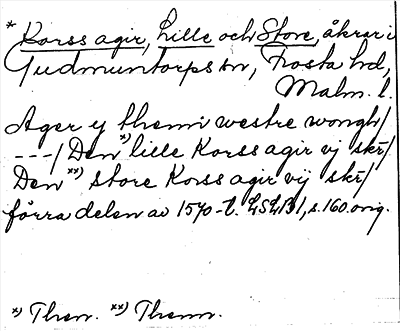 * Korss agir, Lille och Store, åkrar i
Gudmuntorps sn, Frosta hd,
Malm. l.
Ager y themi westre wongh/
---/ Den *) lille Korss agir vj skr/
Den **) store Korss agir vij skr/
förra delen av 1570-t. LSLB1, s. 160. orig.
*) Then. **) Themn.